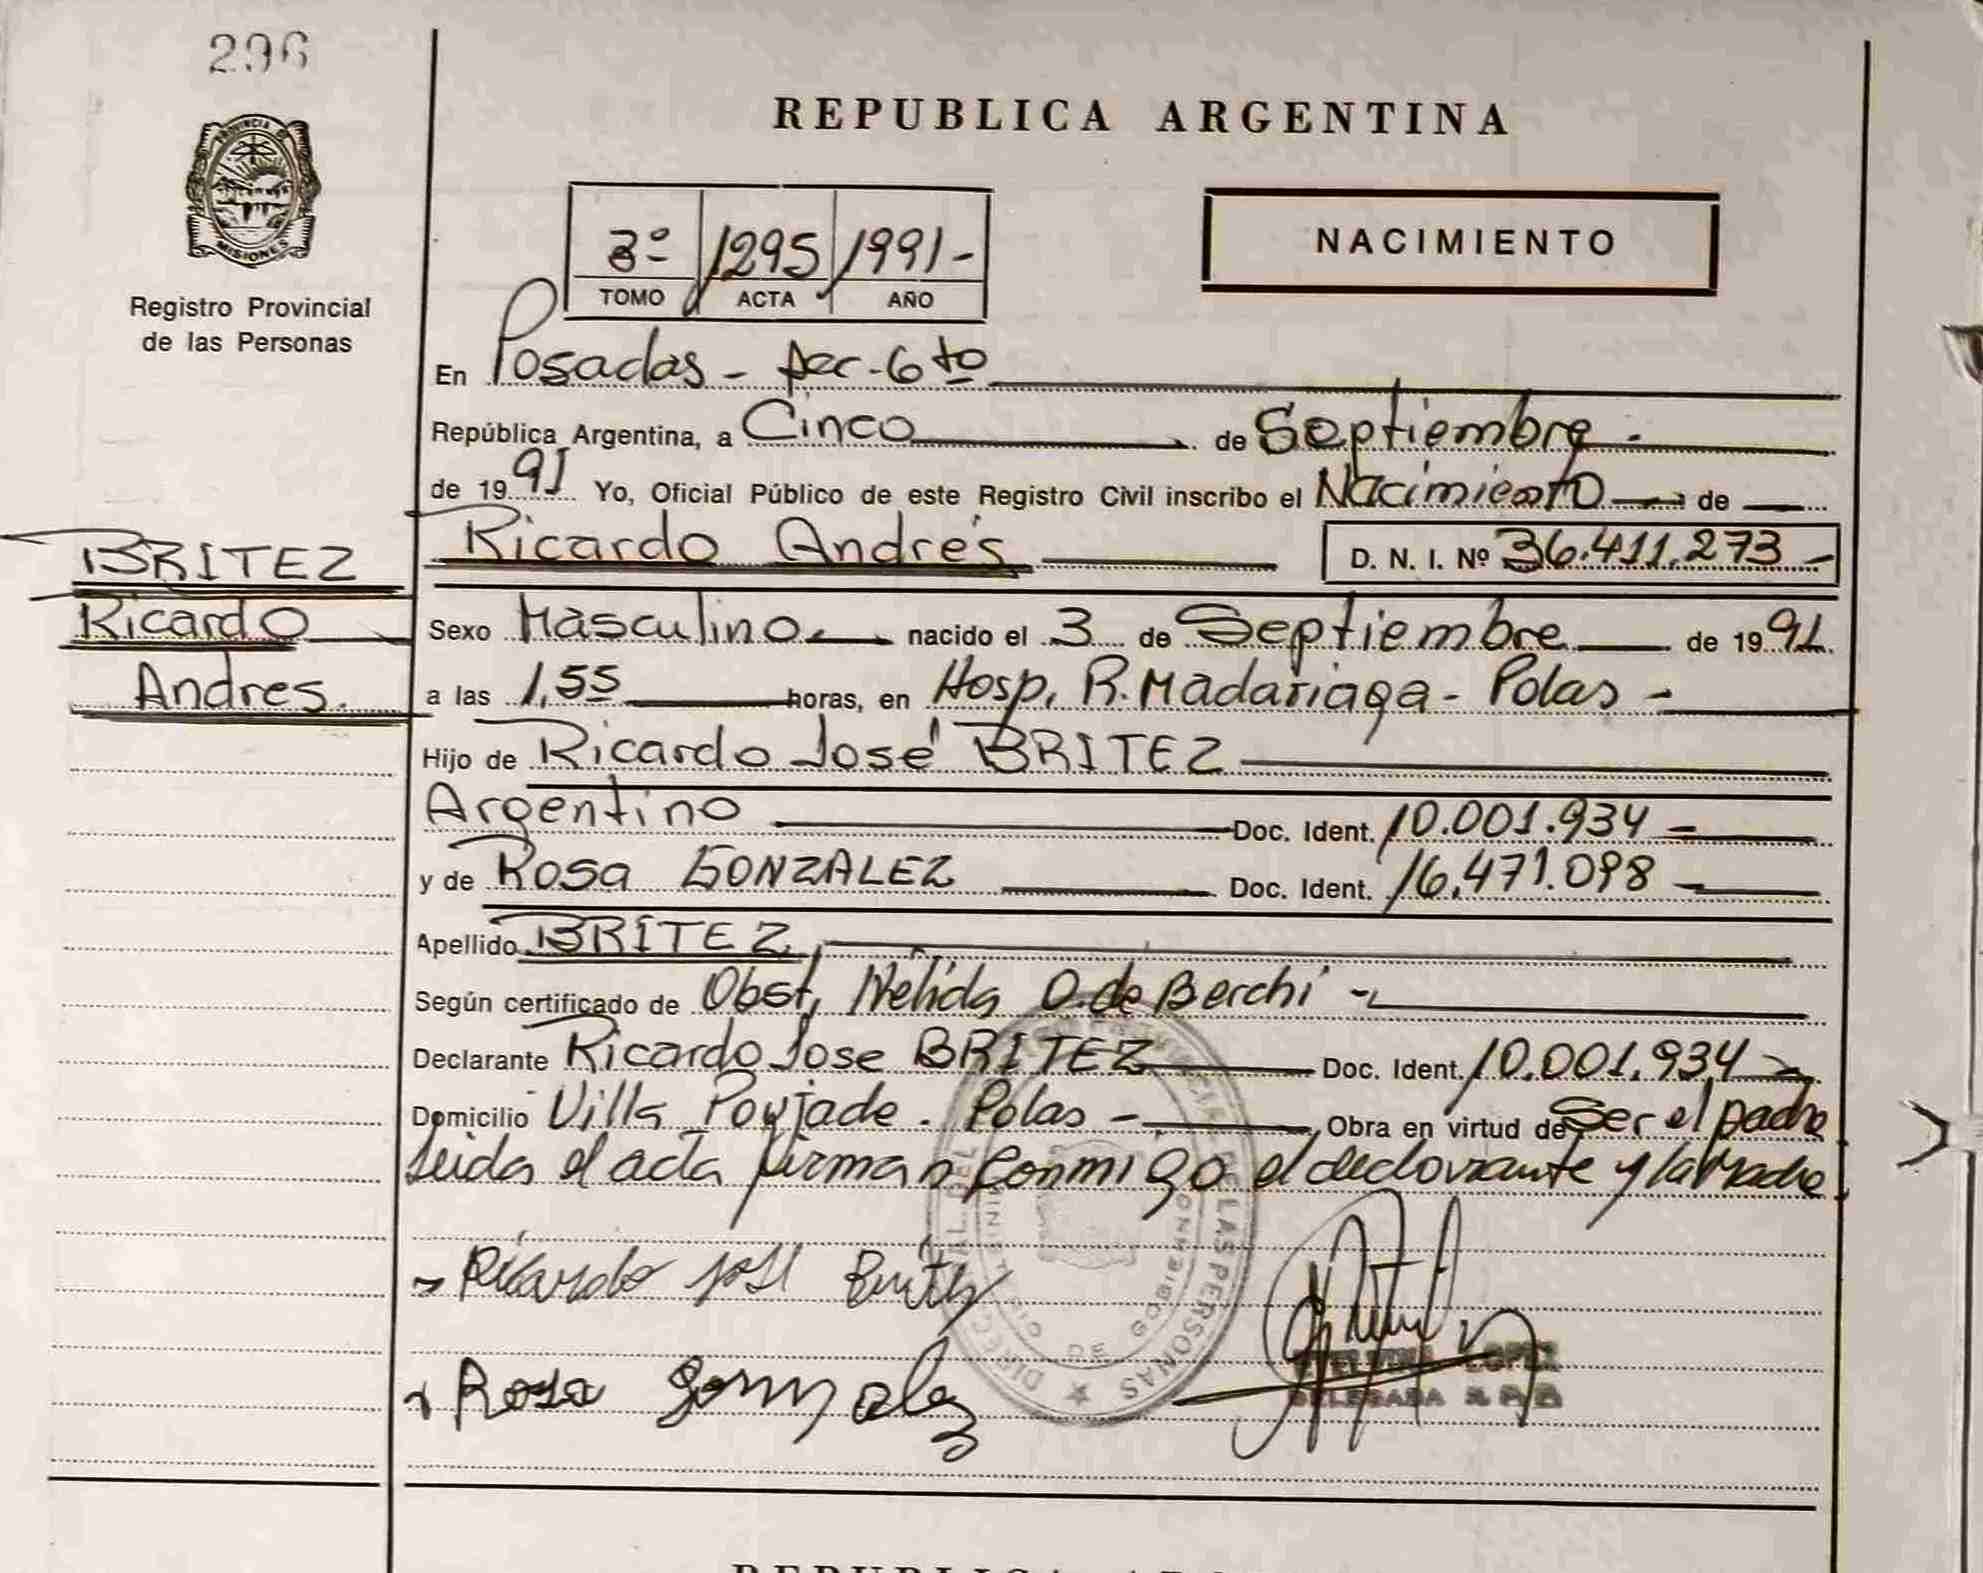 296
PROVINCIA DE
MISIONES
Registro Provincial
de las Personas
REPUBLICA ARGENTINA
3º 1295 1991-
TOMO ACTA AÑO
NACIMIENTO
En Posadas - Sec-6to
República Argentina, a Cinco de Septiembre -
de 1991 Yo, Oficial Público de este Registro Civil inscribo el Nacimiento de
BRITEZ
Ricardo
Andres.
Ricardo Andrés D. N. I. Nº 36.411.273 -
Sexo Masculino nacido el 3 de Septiembre de 1991.
a las 1,55 horas, en Hosp, R. Madariaga - Pdas -
Hijo de Ricardo José BRITEZ
Argentino Doc. Ident. 10.001.934 -
y de Rosa GONZALEZ Doc. Ident. 16.471.098 -
Apellido BRITEZ
Según certificado de Obst, Nelida O. de Berchi -
Declarante Ricardo Jose BRITEZ Doc. Ident. 10.001.934 -
Domicilio Villa Poujade. Pdas - Obra en virtud de Ser el padre
Leida el acta firman conmigo el declarante y la Madre
Ricardo José Britez
Rosa Gonzalez
LOPEZ
DELEGADA
DE LAS PERSONAS
DE GOBIERNO